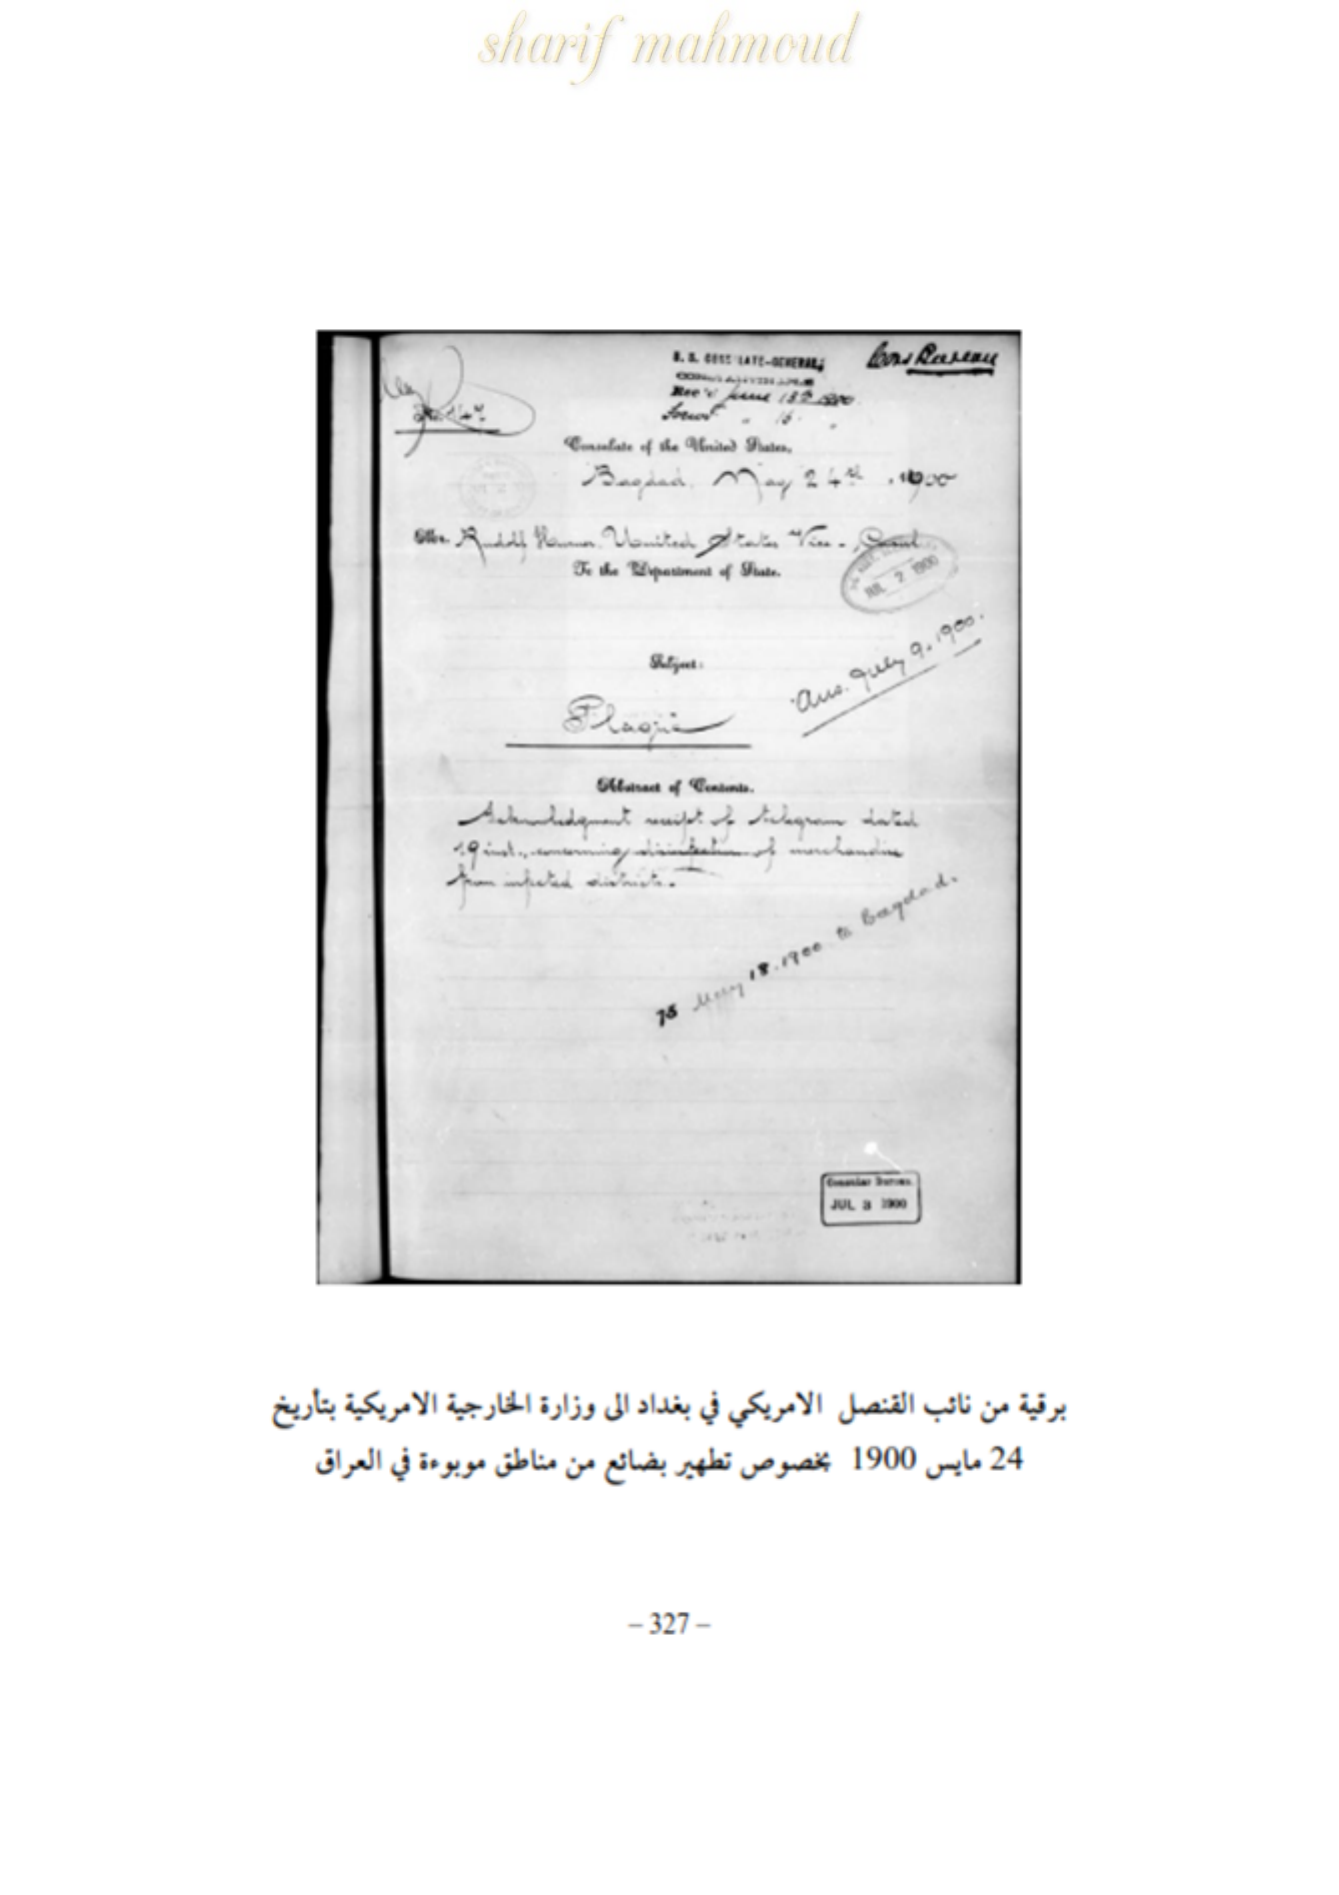 sharif mahmoud
Cons Bureau
U. S. CONSULATE-GENERAL,
CONSTANTINOPLE
Rec'd June 13th 1900.
Forw'd " 16. "
Consulate of the United States,
Bagdad, May 24th, 1900
Mr. Rudolf United States Vice-Consul
To the Department of State.
JUL 2 1900
Subject:
Ans. July 9, 1900.
Plague
Abstract of Contents.
Acknowledgment receipt of telegram dated
19 inst., concerning disinfection of merchandise
from infected districts.
75 May 18. 1900 to Bagdad.
Consular Bureau.
JUL 3 1900
برقية من نائب القنصل الامريكي في بغداد الى وزارة الخارجية الامريكية بتأريخ
24 مايس 1900 بخصوص تطهير بضائع من مناطق موبوءة في العراق
– 327 –